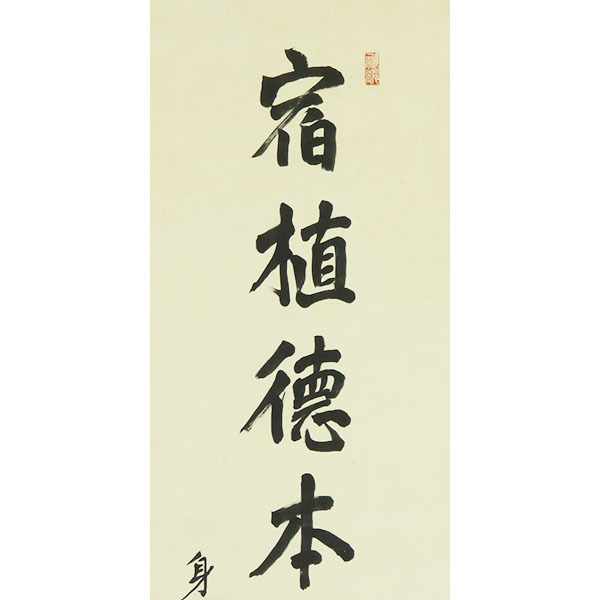 宿植德本
身